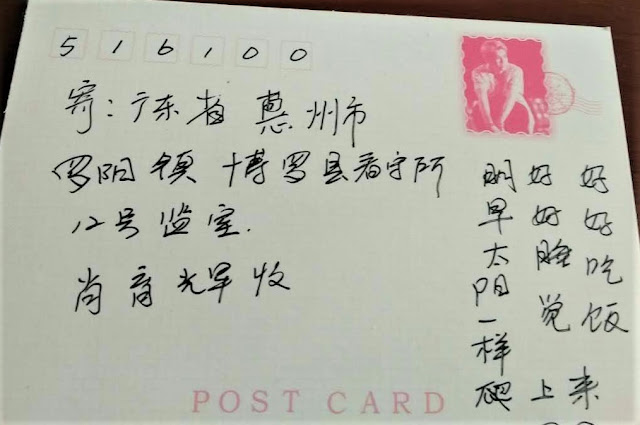 516100
寄：广东省惠州市
罗阳镇 博罗县看守所
12号监室.
肖育辉 收
好好吃饭
好好睡觉
明早太阳一样爬上来
POST CARD